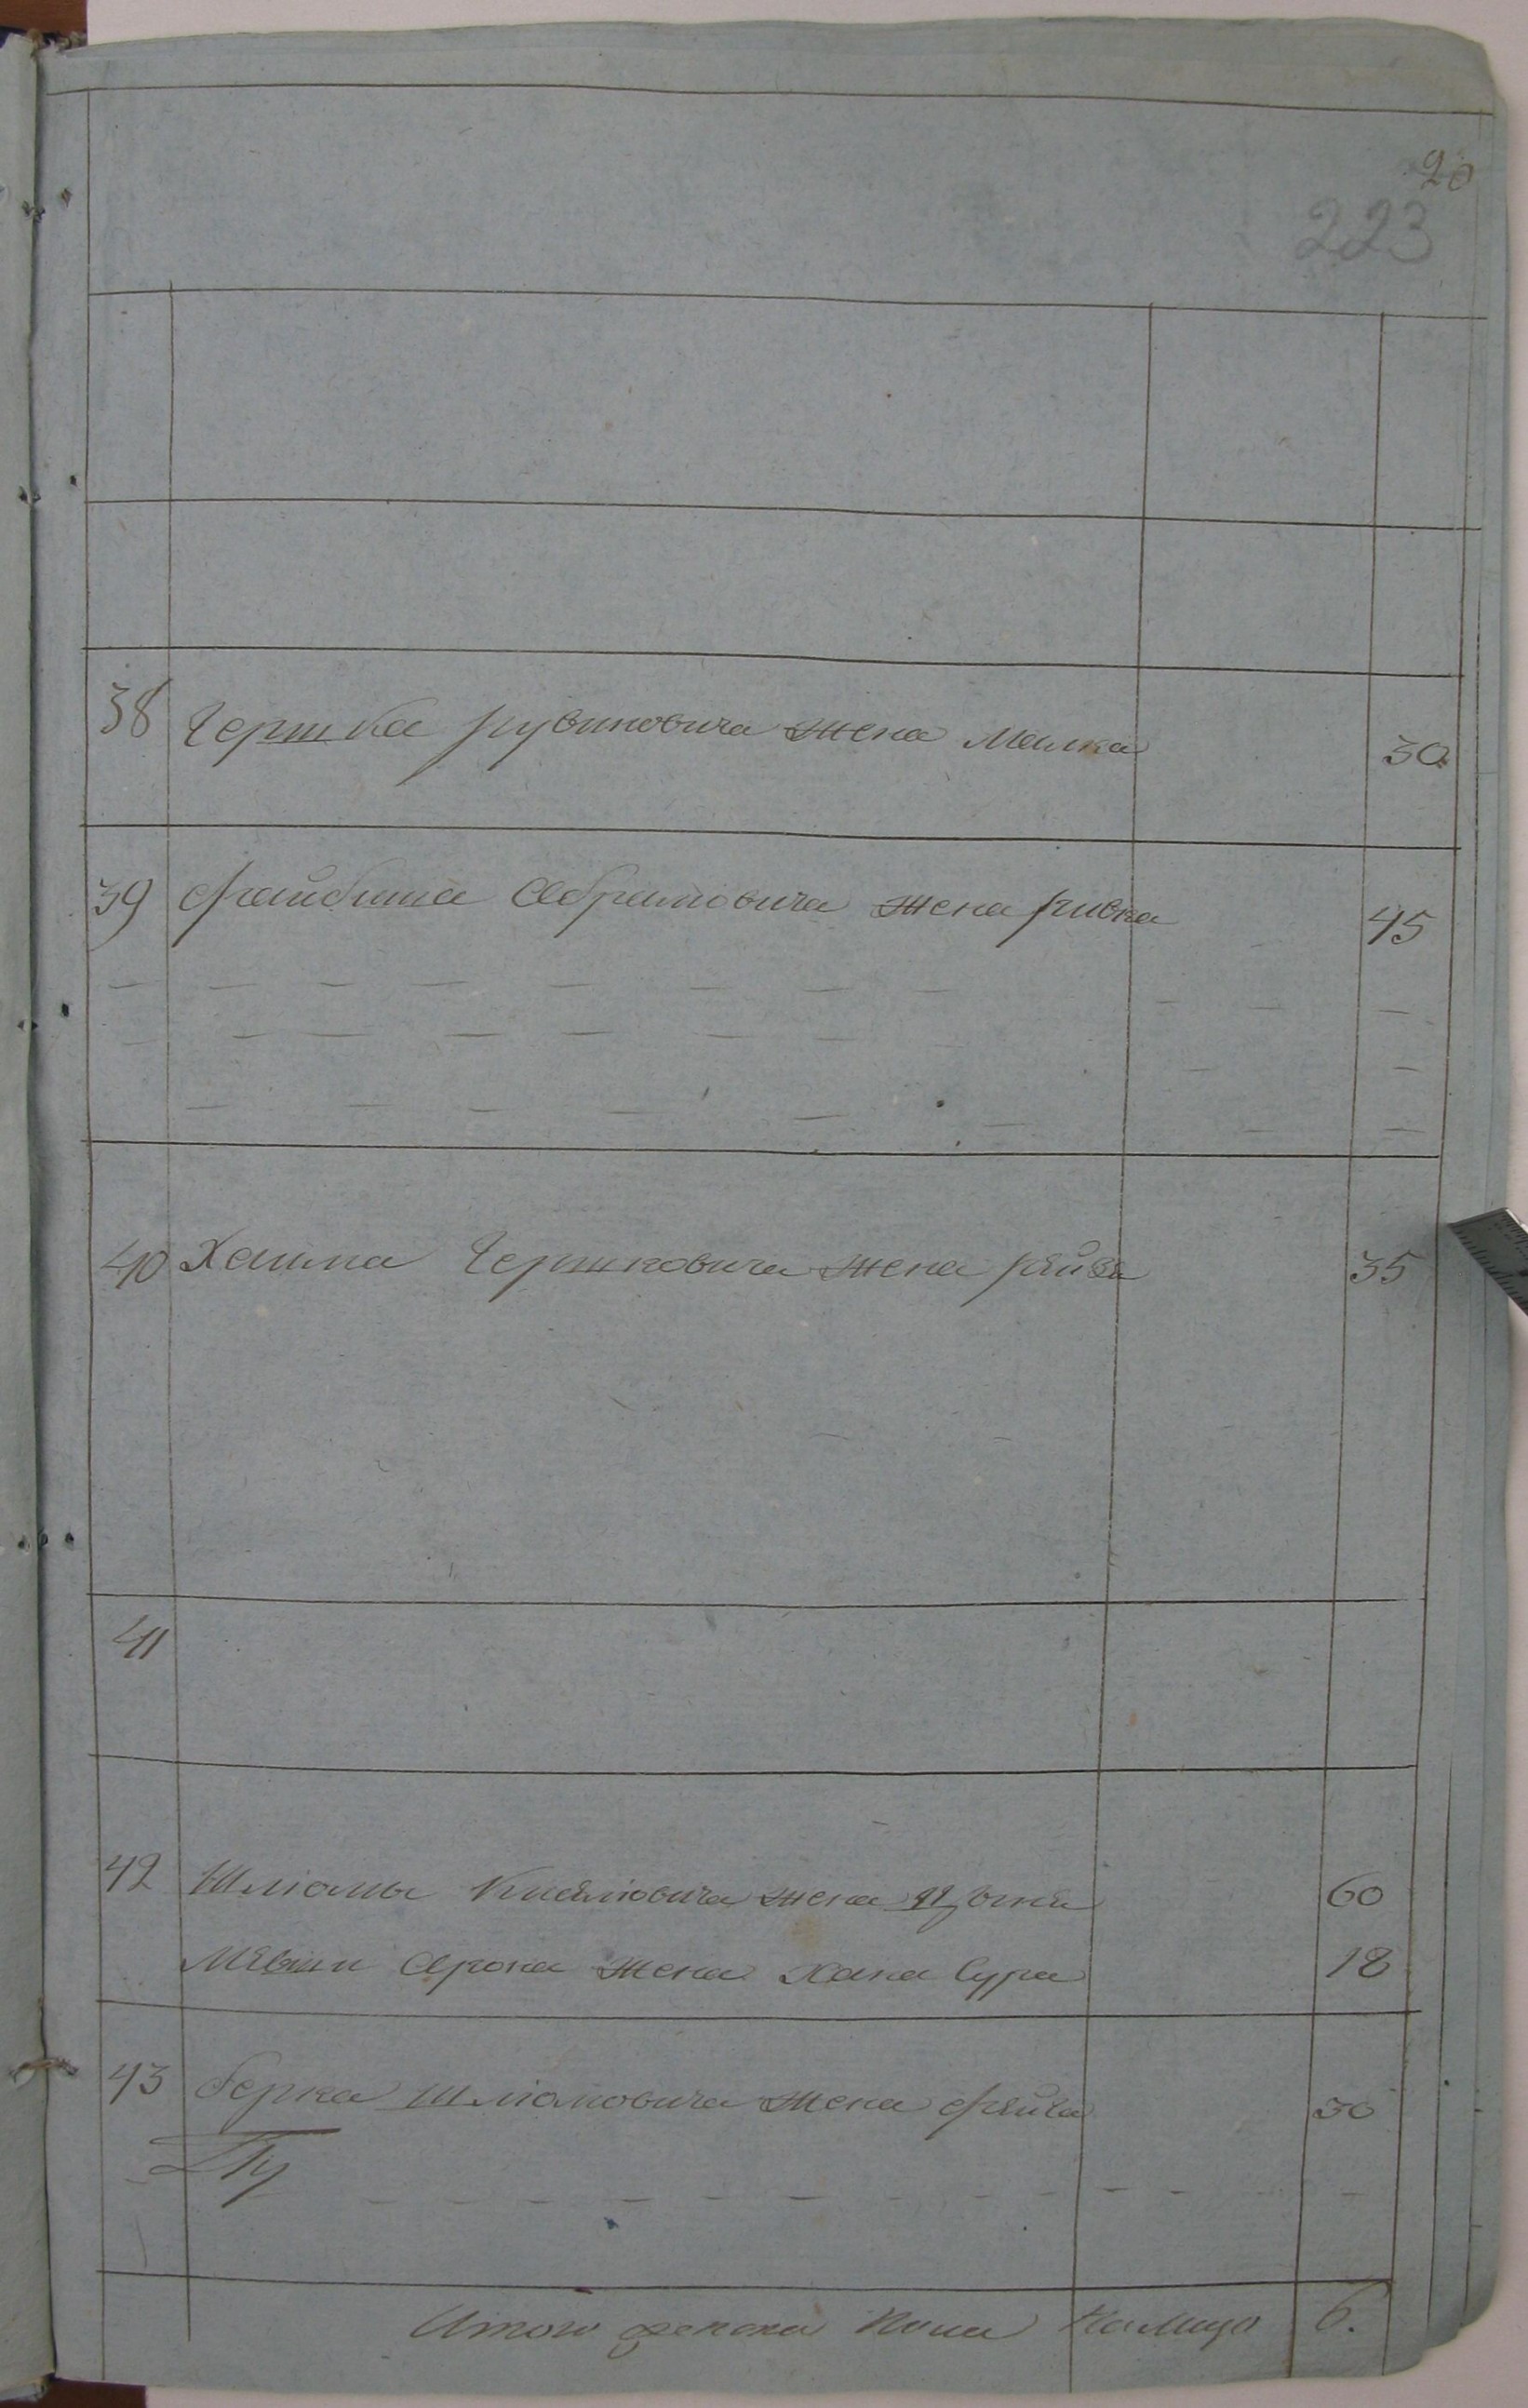 20
223
38 Гершка Рувиновича жена Малка 30
39 Файбиша Абрамовича жена Ривка 45
40 Хаима Гершковича жена Рейза 35
41
42 Шліомы жена 60
Арона жена Хана Сура 18
43 Берка Шліомовича жена Фейга 30
Итого женска пола На лицо 6.